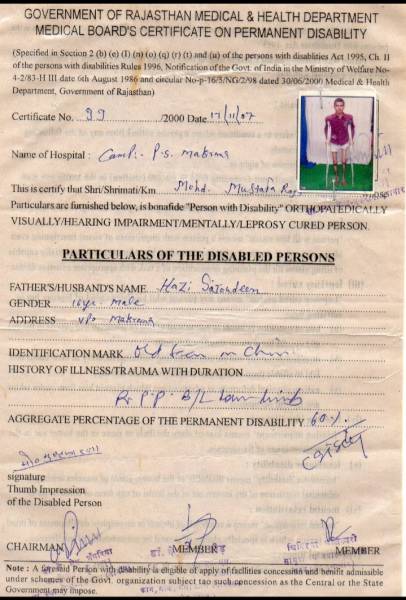 GOVERNMENT OF RAJASTHAN MEDICAL & HEALTH DEPARTMENT
MEDICAL BOARD'S CERTIFICATE ON PERMANENT DISABILITY
(Specified in Section 2 (b) (e) (I) (n) (o) (q) (r) (t) and (u) of the persons with disablities Act 1995, Ch. II
of the persons with disabilities Rules 1996, Notification of the Govt. of India in the Ministry of Welfare No-
4-2/83-H III date 6th August 1986 and circular No-p-16/5/NG/2/98 dated 30/06/2000 Medical & Health
Department, Government of Rajasthan)
Certificate No. 99 /2000 Date 17/11/07
Name of Hospital : Camp:- P.S. Makrana
This is certify that Shri/Shrimati/Km Mohd. Mustafa
Particulars are furnished below, is bonafide "Person with Disability" ORTHOPATEDICALLY
VISUALLY/HEARING IMPAIRMENT/MENTALLY/LEPROSY CURED PERSON.
PARTICULARS OF THE DISABLED PERSONS
FATHER'S/HUSBAND'S NAME Hazi
GENDER 16yr. Male
ADDRESS VPO Makrana
IDENTIFICATION MARK Old scar on Chin
HISTORY OF ILLNESS/TRAUMA WITH DURATION
P.P. B/L Lower limb
AGGREGATE PERCENTAGE OF THE PERMANENT DISABILITY. 60%.
signature
Thumb Impression
of the Disabled Person
CHAIRMAN MEMBER MEMBER
Note : A Person with disability is eligible of apply of facilities concession and benifit admissible
under schemes of the Govt. organization subject tao such concession as the Central or the State
Government may impose.